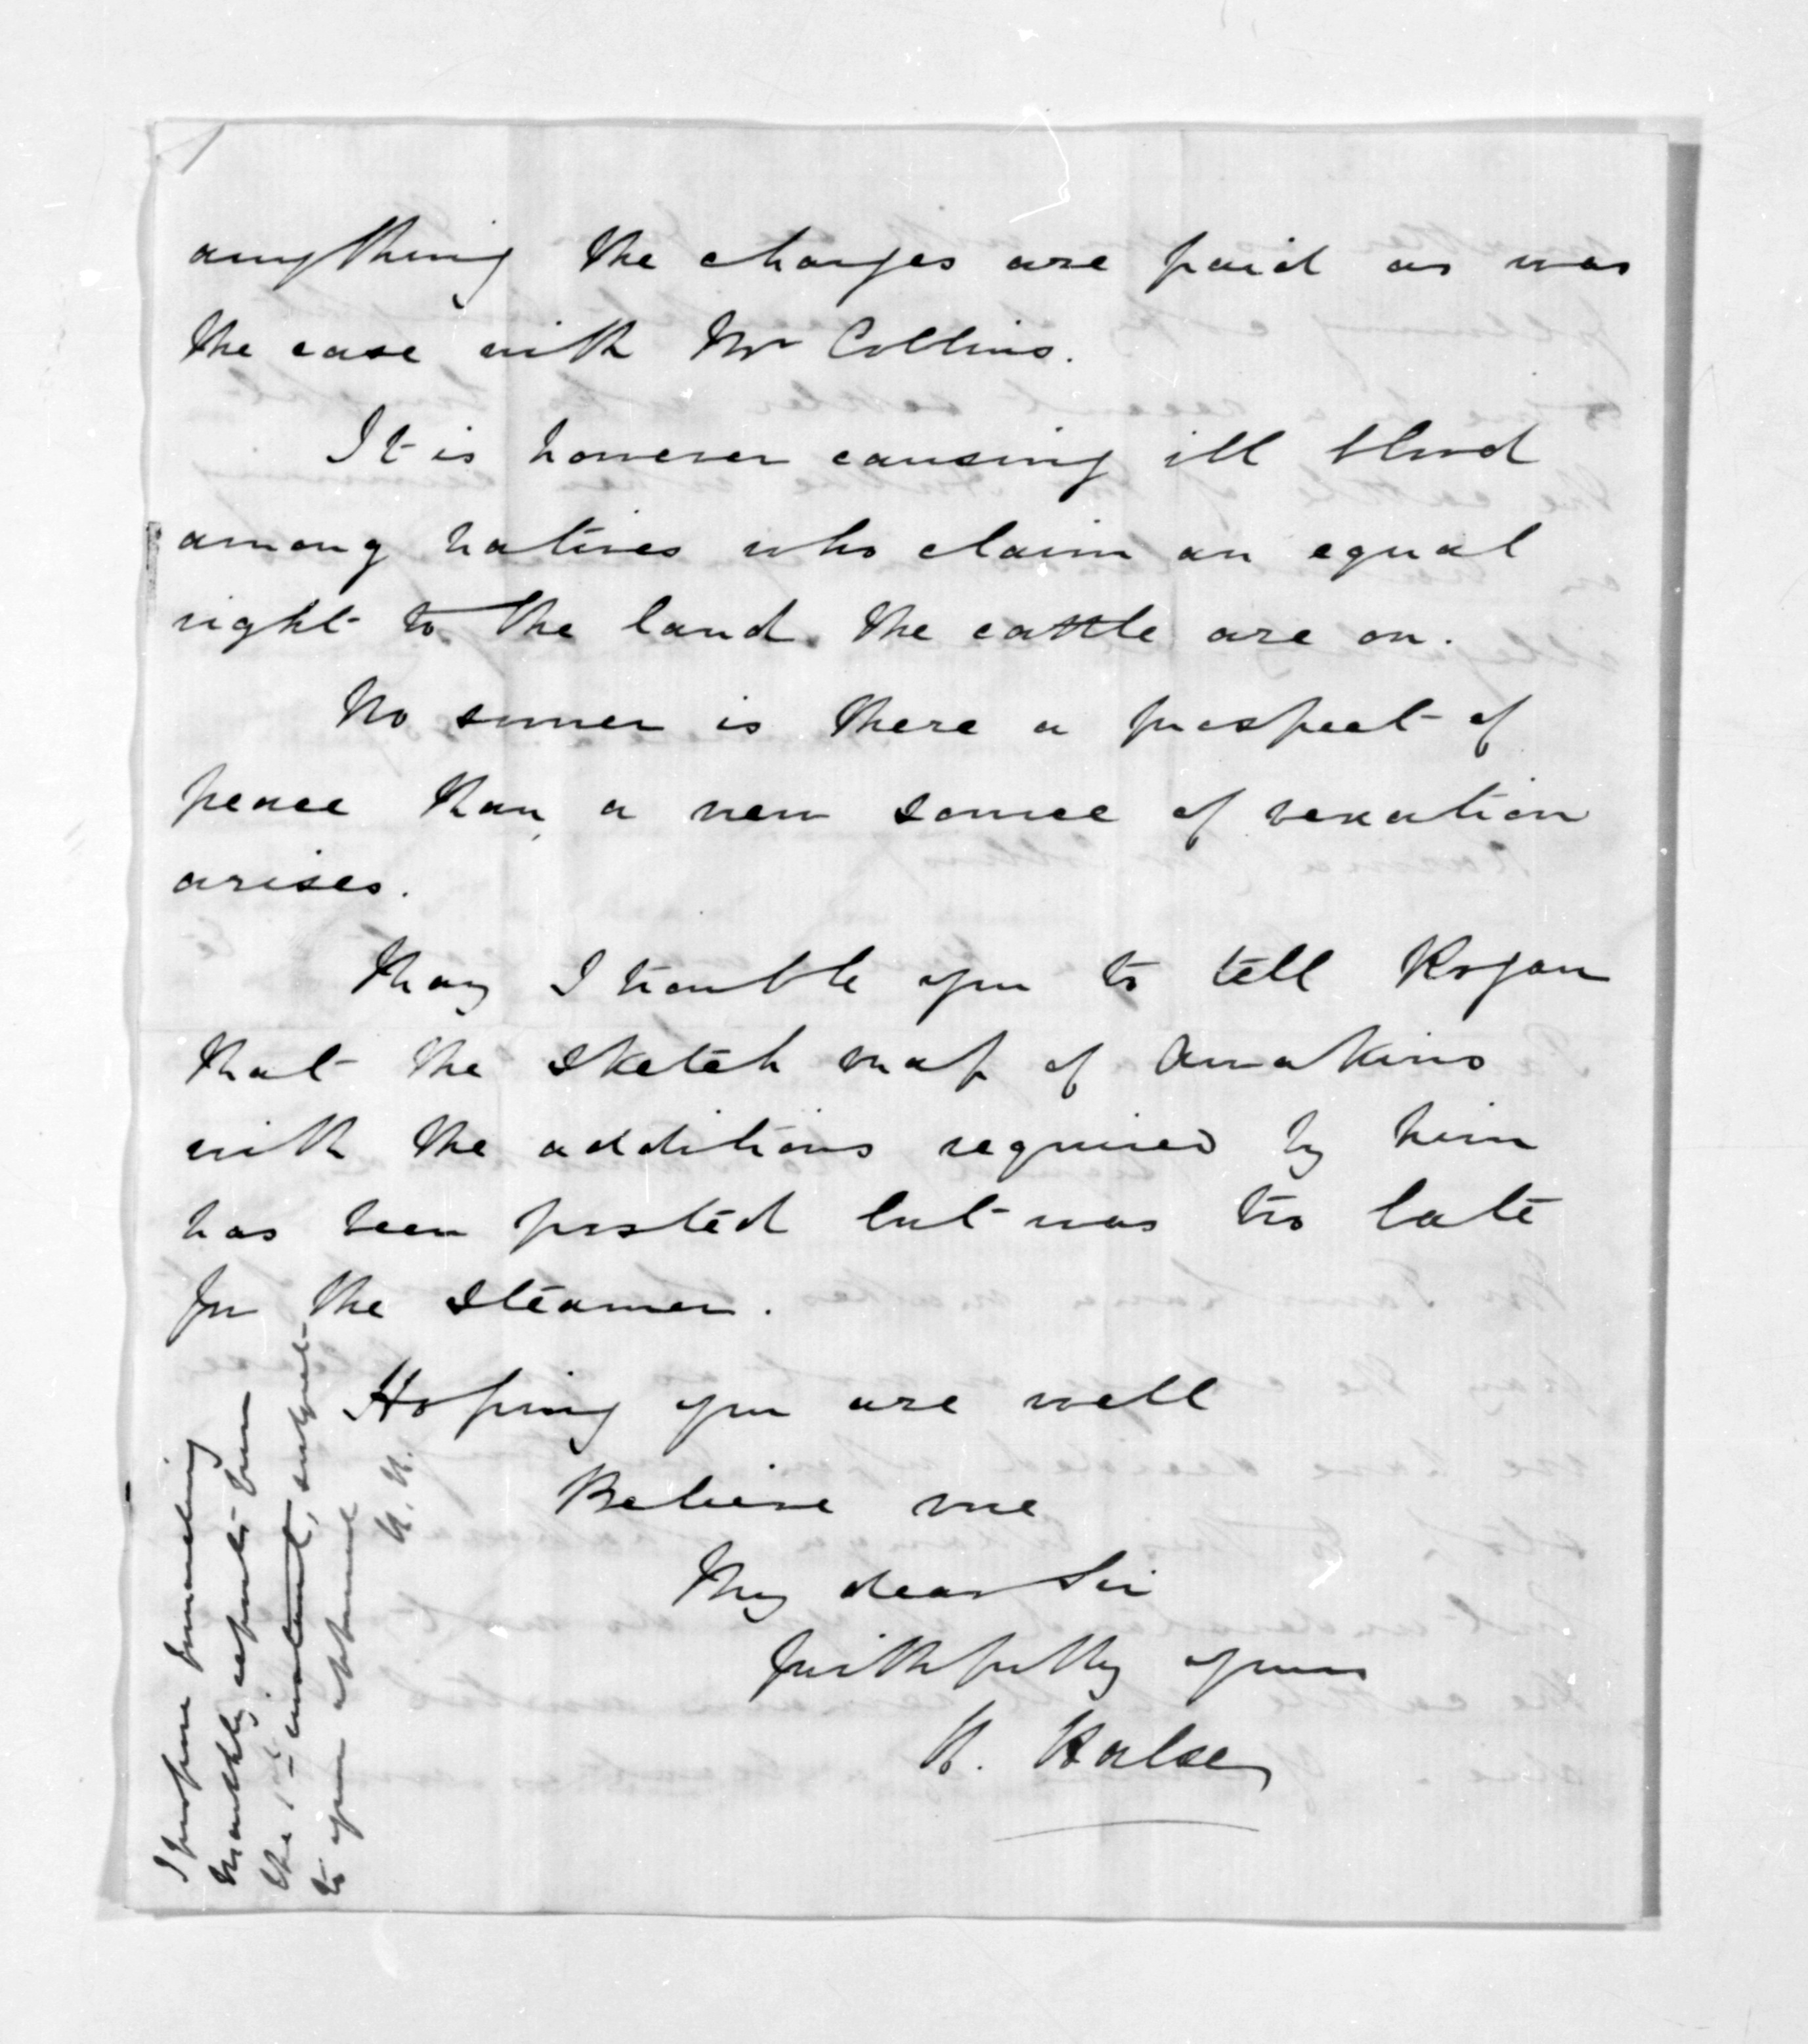 anything the charges are paid as was
the case with Mr Collins.
It is however causing ill blood
among natives who claim an equal
right to the land the cattle are on.
No sooner is there a prospect of
peace than a new source of vexation
arises.
May I trouble you to tell Rogan
that the sketch map of Amakino
with the additions required by him
has been posted but was too late
for the steamer.
Hoping you are well
Believe me
My dear Sir
faithfully yours
H. Halse
I propose furnishing
monthly reports from
the 1st instant, subject
to your approval
H. H.